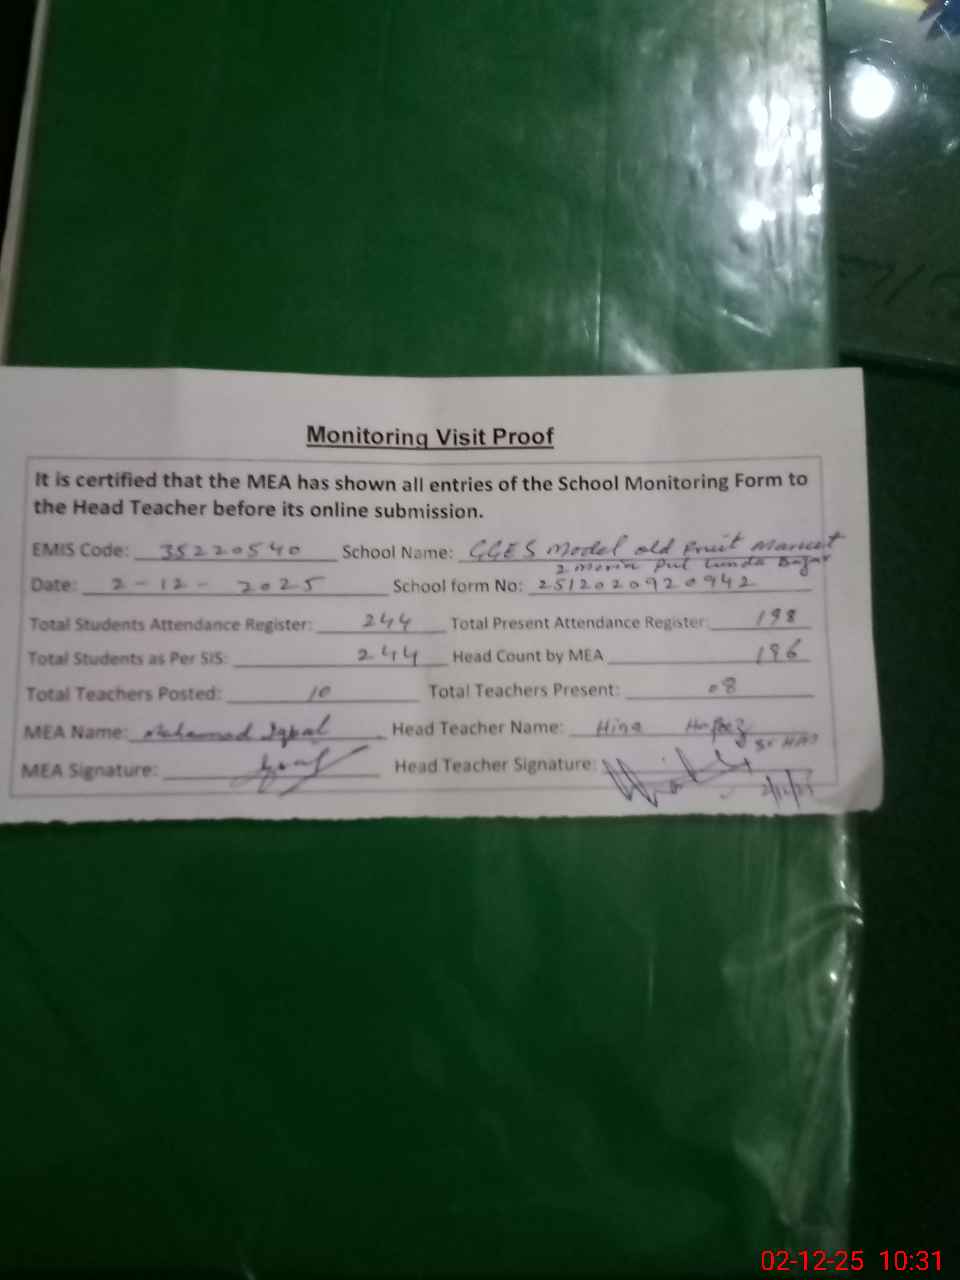 Monitoring Visit Proof
It is certified that the MEA has shown all entries of the School Monitoring Form to
the Head Teacher before its online submission.
EMIS Code: 35220540 School Name: GGES Model old Fruit Market
2 Moria Pul Lunda Bazar
Date: 2-12-2025 School form No: 2512020920942
Total Students Attendance Register: 244 Total Present Attendance Register: 198
Total Students as Per SIS: 244 Head Count by MEA 196
Total Teachers Posted: 10 Total Teachers Present: 08
MEA Name: Muhammad Iqbal Head Teacher Name: Hina Hafeez
MEA Signature: Head Teacher Signature:
02-12-25 10:31